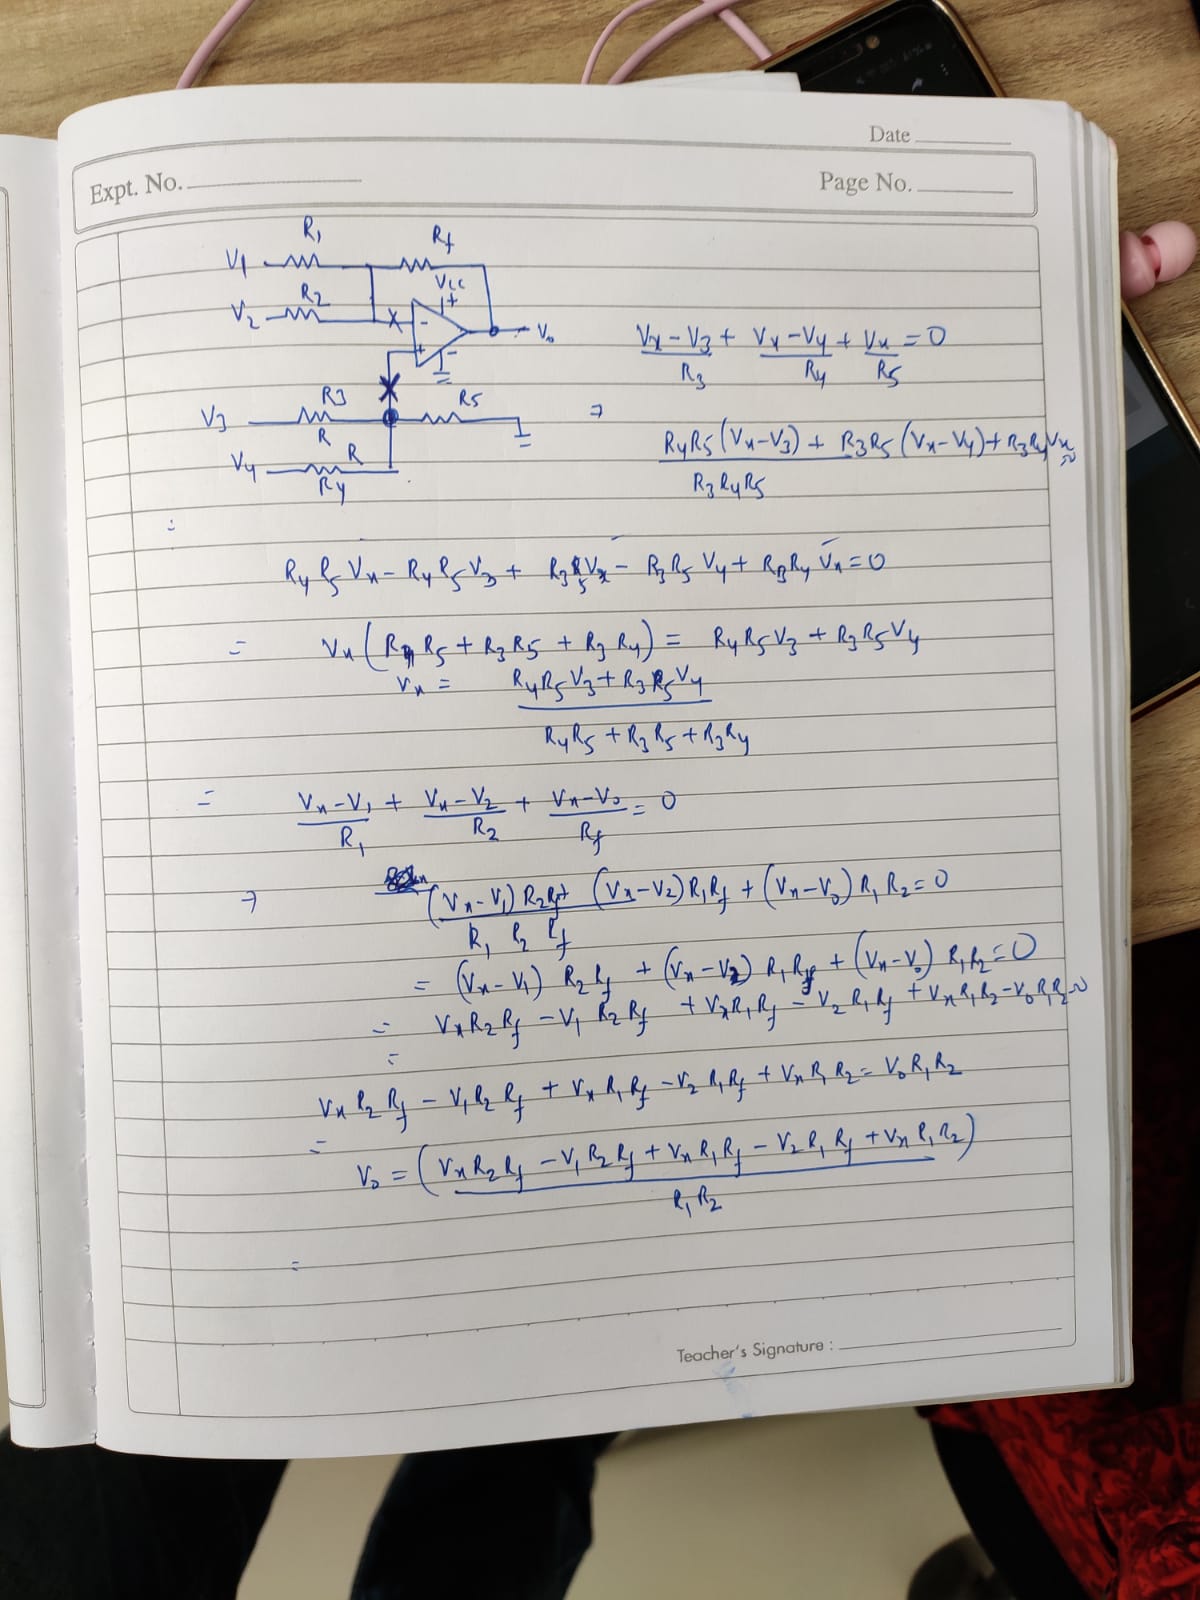 Date
Expt. No.
Page No.
R₁
Rf
V1
VCC
+
R2
V₂
X
-
V₀
+
-
R3
R5
V3
R
V4
R
R4
(Vx-V3)/R3 + (Vx-V4)/R4 + Vx/R5 = 0
⇒
(R4R5(Vx-V3) + R3R5(Vx-V4) + R3R4Vx)/(R3R4R5)
R4R5Vx - R4R5V3 + R3R5Vx - R3R5V4 + R3R4Vx = 0
= Vx(R4R5 + R3R5 + R3R4) = R4R5V3 + R3R5V4
Vx = (R4R5V3 + R3R5V4)/(R4R5 + R3R5 + R3R4)
= (Vx-V₁)/R₁ + (Vx-V2)/R2 + (Vx-V₀)/Rf = 0
⇒ ((Vx-V₁)R2Rf + (Vx-V2)R₁Rf + (Vx-V₀)R₁R2)/(R₁R2Rf) = 0
= (Vx-V₁)R2Rf + (Vx-V2)R₁Rf + (Vx-V₀)R₁R2 = 0
= VxR2Rf - V₁R2Rf + VxR₁Rf - V2R₁Rf + VxR₁R2 - V₀R₁R2 = 0
=
VxR2Rf - V₁R2Rf + VxR₁Rf - V2R₁Rf + VxR₁R2 = V₀R₁R2
=
V₀ = (VxR2Rf - V₁R2Rf + VxR₁Rf - V2R₁Rf + VxR₁R2)/(R₁R2)
=
Teacher's Signature :